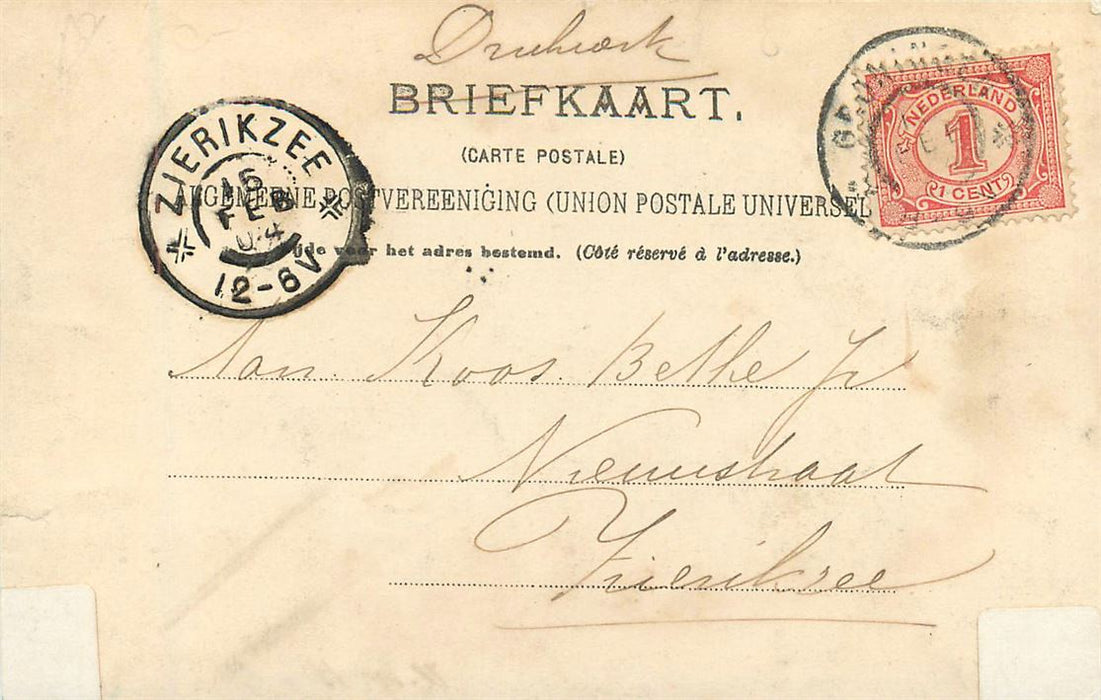 Drukwerk
BRIEFKAART.
(CARTE POSTALE)
ALGEMEENE POSTVEREENIGING (UNION POSTALE UNIVERSEL
voor het adres bestemd. (Côté réservé à l'adresse.)
ZIERIKZEE
15
FEB
04
12-6V
NEDERLAND
1
1 CENT
Aan Koos Bethe Jr
Nieuwstraat
Zierikzee